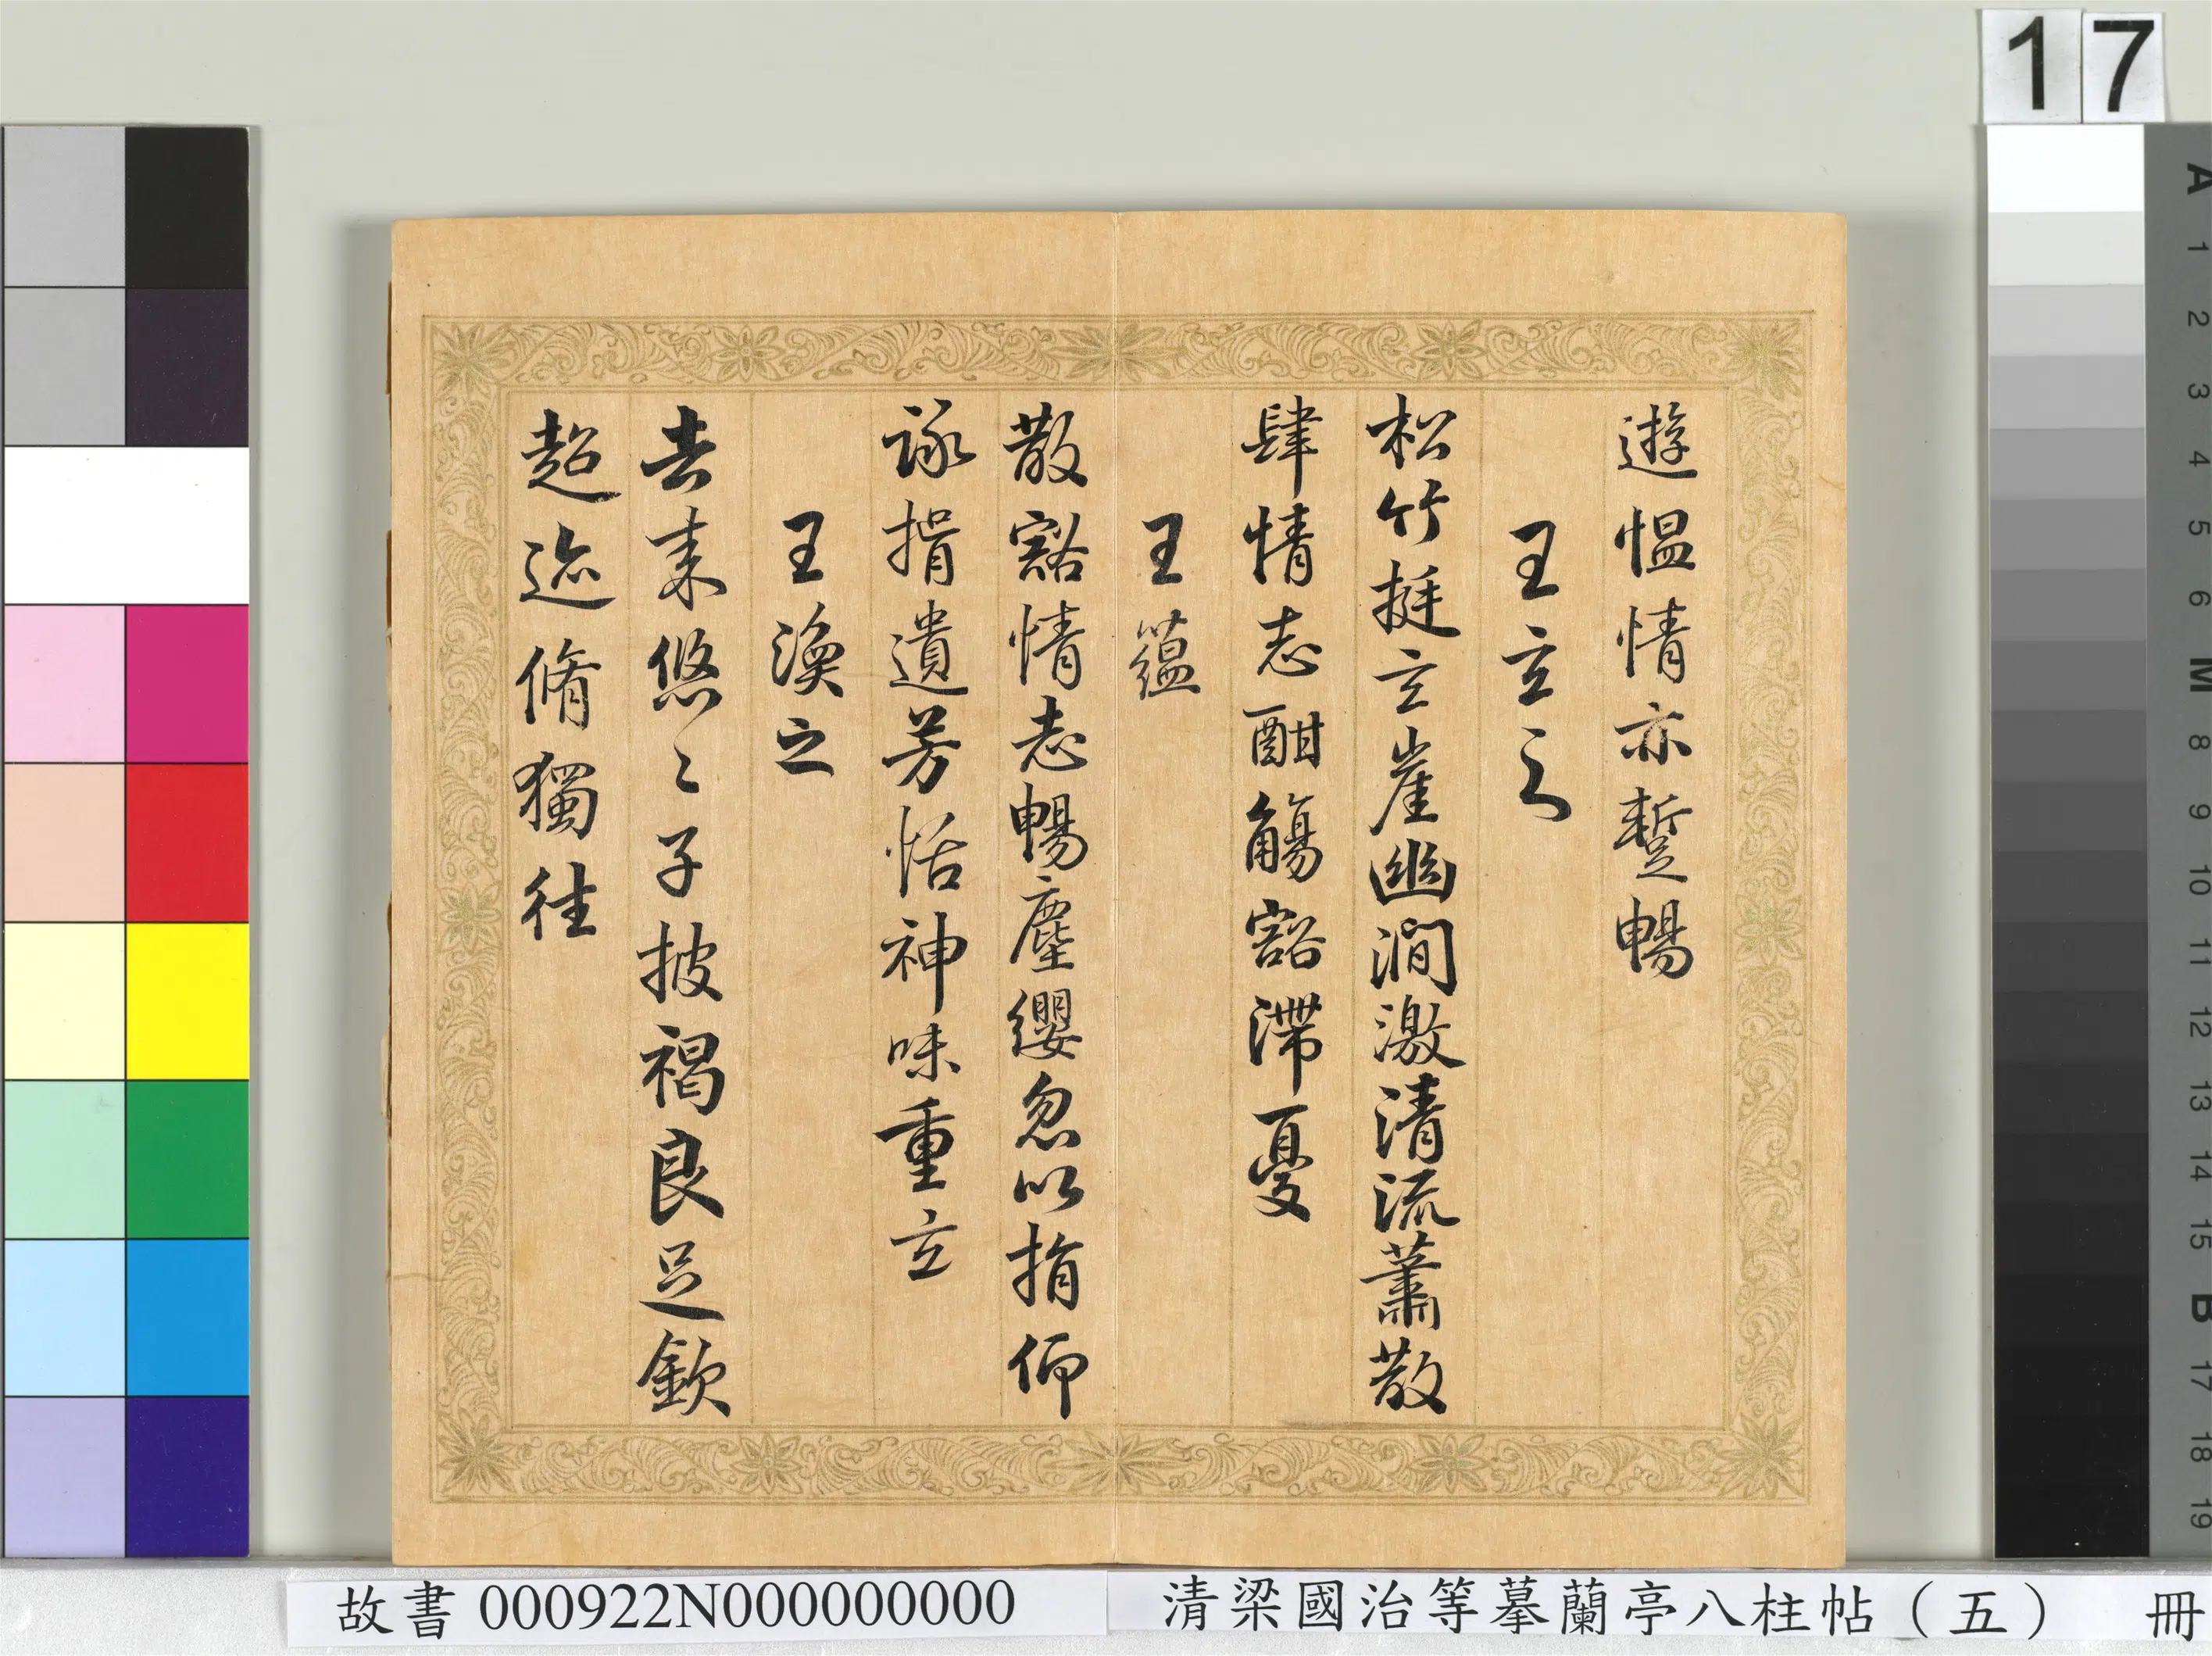 17
遊慍情亦蹔暢
王玄之
松竹挺立崖幽澗激清流蕭散
肆情志酣觴豁滯憂
王蘊
散豁情志暢塵纓忽以捐仰
詠揖遺芳恬神味重玄
王渙之
去來悠〻子披褐良足欽
超迹脩獨往
A 1 2 3 4 5 6 M 8 9 10 11 12 13 14 15 B 17 18 19
故書 000922N000000000
清梁國治等摹蘭亭八柱帖（五） 冊